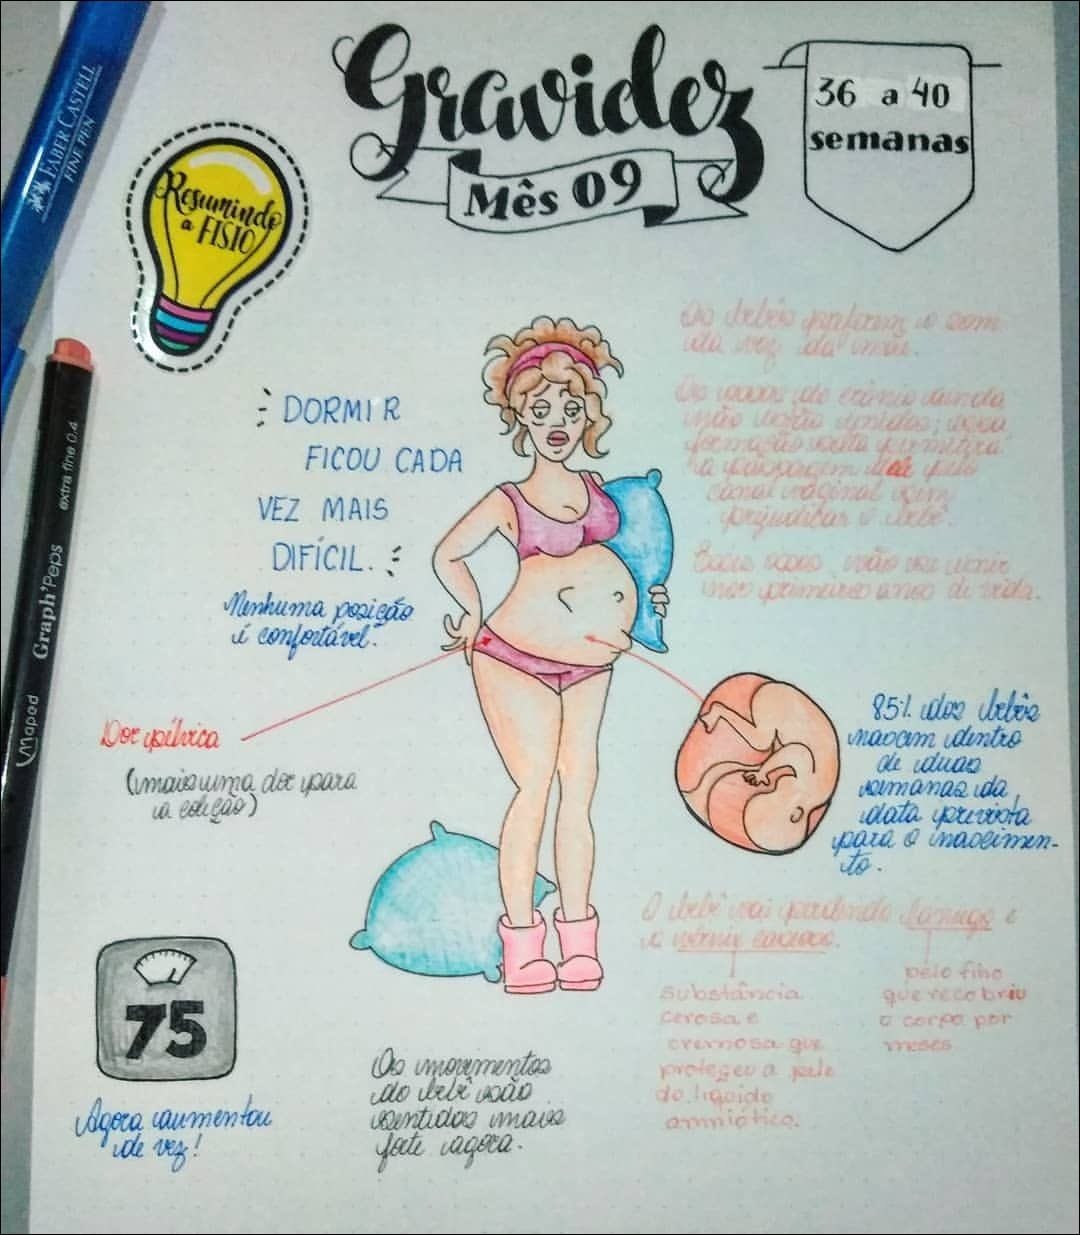 Gravidez
Mês 09
36 a 40
semanas
FABER CASTELL
FINE PEN
Resumindo
a FISIO
Maped Graph'Peps extra fine 0.4
DORMIR
FICOU CADA
VEZ MAIS
DIFÍCIL.
Nenhuma posição
é confortável.
Os bebês preferem o som
da voz da mãe.
Os ossos do crânio ainda
não estão unidos; essa
formação solta permitirá
a passagem dele pelo
canal vaginal sem
prejudicar o bebê.
Esses ossos vão se unir
nos primeiros anos de vida.
Dor pélvica
(mais uma dor para
a coleção)
85% dos bebês
nascem dentro
de duas
semanas da
data prevista
para o nascimen-
to.
O bebê vai perdendo lanugo e
o vérnix caseoso.
substância
cerosa e
cremosa que
protegeu a pele
do líquido
amniótico.
pelo fino
que recobriu
o corpo por
meses
75
Agora aumentou
de vez!
Os movimentos
do bebê são
sentidos mais
forte agora.